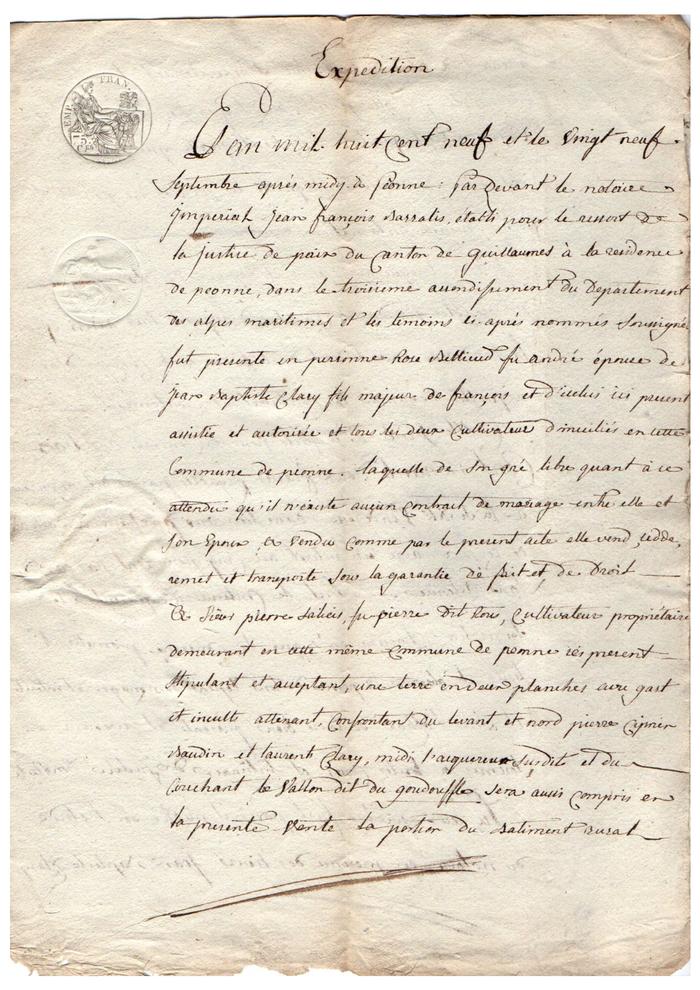 Expedition
EMP. FRAN.
L'an mil huit cent neuf et le vingt neuf
Septembre après midy à péonne : par devant le notaire
jmperial Jean françois Barralis, établi pour le ressort de
la justice de paix du canton de guillaumes à la residence
de peonne, dans le troisieme arrondissement du Departement
des alpes maritimes et les temoins ci-après nommés Soussignés
fut presente en personne Rose Bellieud fu andré épouse de
jean Baptiste Clary fils majeur de françois et d'icelui ici present
assistée et autorisée et tous les deux Cultivateur domiciliés en cette
Commune de peonne. laquelle de son gré libre quant à ce
attendu qu'il n'existe aucun Contrat de mariage entre elle et
son Epoux, a vendu comme par le present acte elle vend, cedde,
remet et transporte sous la garantie de fait et de Droit
à Sieur pierre Salicis, fu pierre dit Rou, Cultivateur propriétaire
demeurant en cette même commune de peonne ici present
Stipulant et acceptant, une terre en deux planches avec gast
et inculte attenant, Confrontant du levant et nord pierre
Baudin et laurent Clary, midi l'acquereur susdit et du
Couchant le Vallon dit du goudouffle sera aussi compris en
la presente Vente la portion du Batiment rural